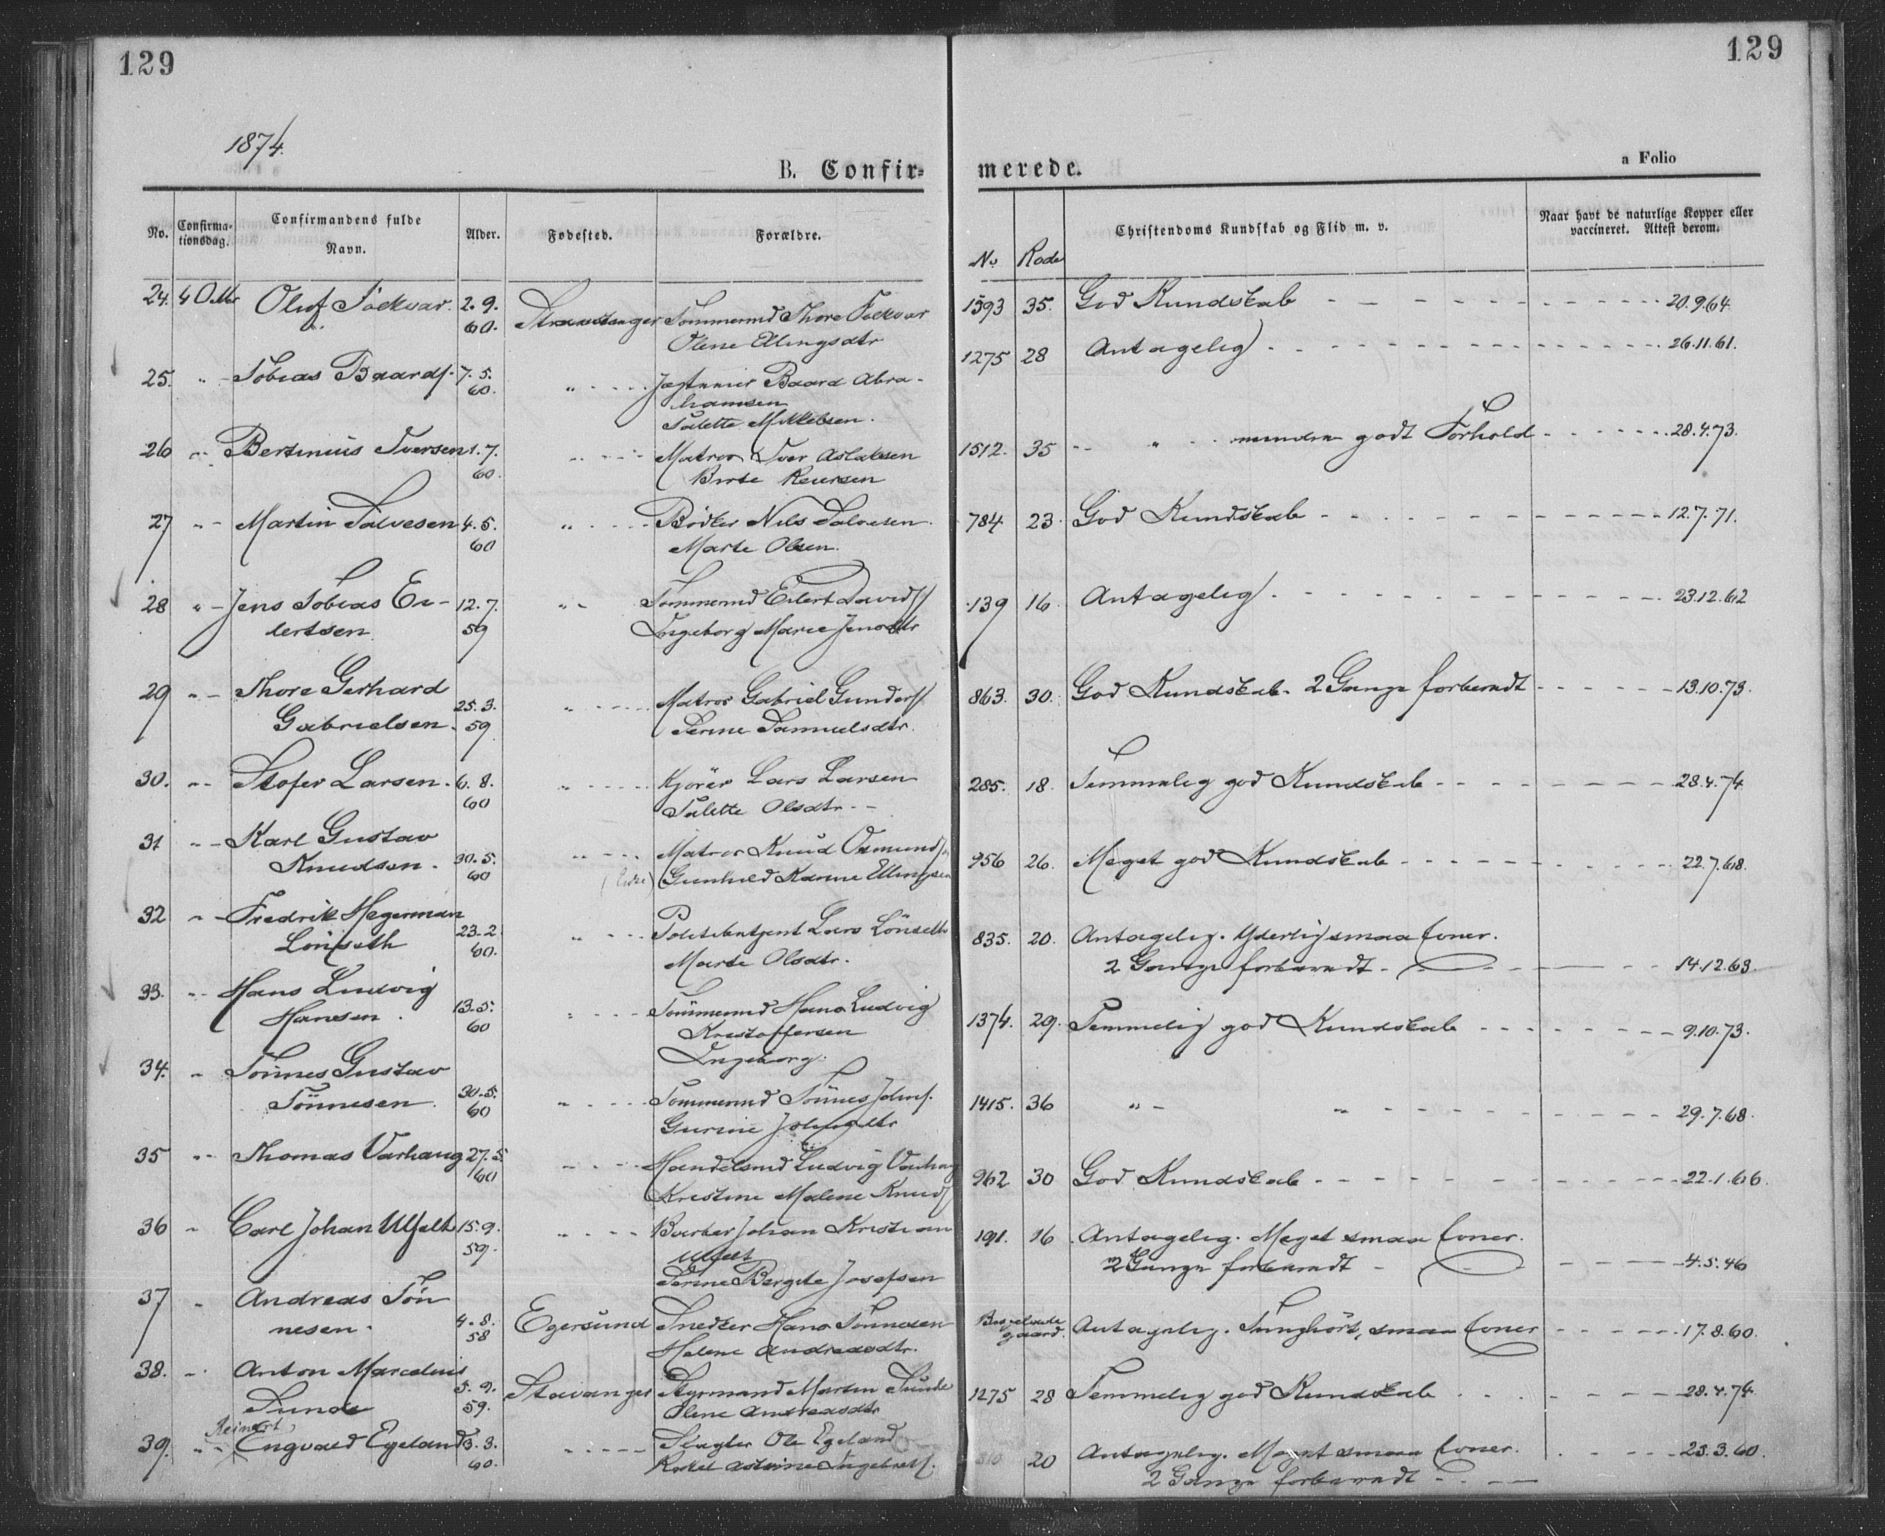 129
129
1874.
B. Confir-
merede.
a Folio
No.
Confirma-
tionsdag.
Confirmandens fulde
Navn.
Alder.
Fødested.
Forældre.
No
Rode
Christendoms Kundskab og Flid m. v.
Naar havt de naturlige Kopper eller
vaccineret. Attest derom.
24. 4 Oktbr Oluf 2. 9.
60. Stavanger Tømmermd Thore
Olene Ellingsdtr
1593 35. God Kundskab - - - 20.9.64.
25. " - Tobias Baards. 7. 5.
60. " - - - Baard Abra-
hamsen
Salette Mikkelsen.
1275 28 Antagelig - - - 26.11.61.
26 " - Bertinius Iversen 1. 7.
60. " - - - Matros Iver Aslaksen
Birte
1512. 35 - " - mindre godt Forhold - - - 28.4.73.
27 " - Martin Salvesen 4. 5.
60 " - - - Bødker Nils Salvesen.
Marte Olsen.
784 23 God Kundskab - - - 12.7.71.
28 " - Jens Tobias Ei-
lertsen 12. 7.
59 " - - Tømmermd Eilert Davids
Ingeborg Marie Jensdtr
139 16 Antagelig - - - 23.12.62
29 " - Thore Gerhard
Gabrielsen. 25. 3.
59 " - - - Matros Gabriel Gunders
Serine Samuelsdtr.
863. 30. God Kundskab. 2 Gange forberedt - - - 13.10.73.
30. " - Stofer Larsen. 6. 8.
60 " - - - Kjører Lars Larsen
Salette Olsdtr. -
285. 18. Temmelig god Kundskab - - - 28.4.74
31 " - Karl Gustav
Knudsen. 30. 5.
60 " - - - Matros Knud Osmunds
Gunhild Karine Ellingsen
956 26. Meget god Kundskab - - - 22.7.68.
32 " - Fredrik Hegerman
Lönseth 23. 2.
60. " - - - Politibetjent Lars Lönseth
Marte Olsdtr.
835. 20. Antagelig. Yderlig smaa Evner.
2 Gange forberedt - - - 14.12.63.
33. " - Hans Ludvig
Hansen. 13. 5.
60 " - - - Tømmermd Hans Ludvig
Kristoffersen
Ingeborg.
1374. 29. Temmelig god Kundskab - - - 9.10.73.
34. " Tönnes Gustav
Tönnesen. 30. 5.
60 " - - - Tømmermd Tönnes Johns.
Gurine
1415. 36 " - " - - - 29.7.68.
35 " - Thomas Varhaug 27. 5
60 - - - Handelsmd Ludvig Varhaug
Kristine Malene Knuds
962 30 God Kundskab - - - 22.1.66.
36 " Carl Johan Ulfelt 15. 9.
59. " - - - Johan Kristian
Ulfelt
Serine Bergite Josefsen
191. 16 Antagelig. Meget smaa Evner.
2 Gange forberedt - - - 4.5.46
37 " Andreas Tön
nesen. 4. 8.
58 Egersund Snedker Hans Tönnesen
Helene Andreasdtr.
Antagelig. Tunghört, smaa Evner - - - 17.8.60.
38. " Anton Marcelius
Sunde 5. 9.
59. Stavanger Styrmand Martin Sunde
Olene Andreasdtr
1275 28 Temmelig god Kundskab - - - 28.4.74.
39. " - Reinert
Engvald Egeland 3. 3.
60. " - - - Slagter Ole Egeland
20 Antagelig. Meget smaa Evner. - - - 23.3.60.
2 Gange forberedt - -